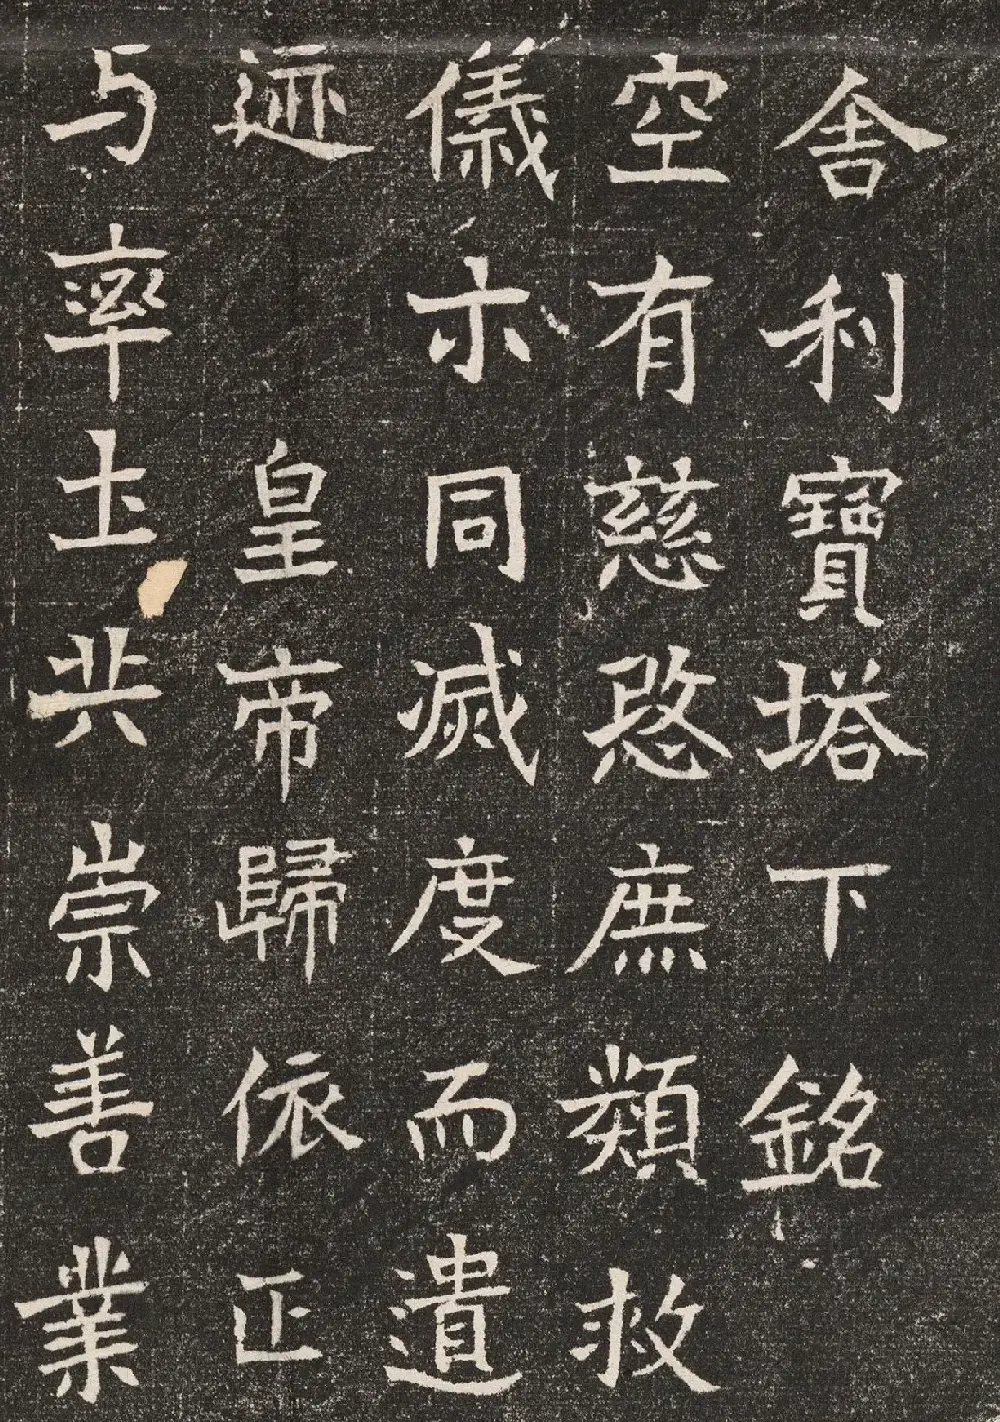 舍利寶塔下銘
空有慈愍庶類救
儀示同滅度而遺
迹皇帝歸依正
与率土共崇善業